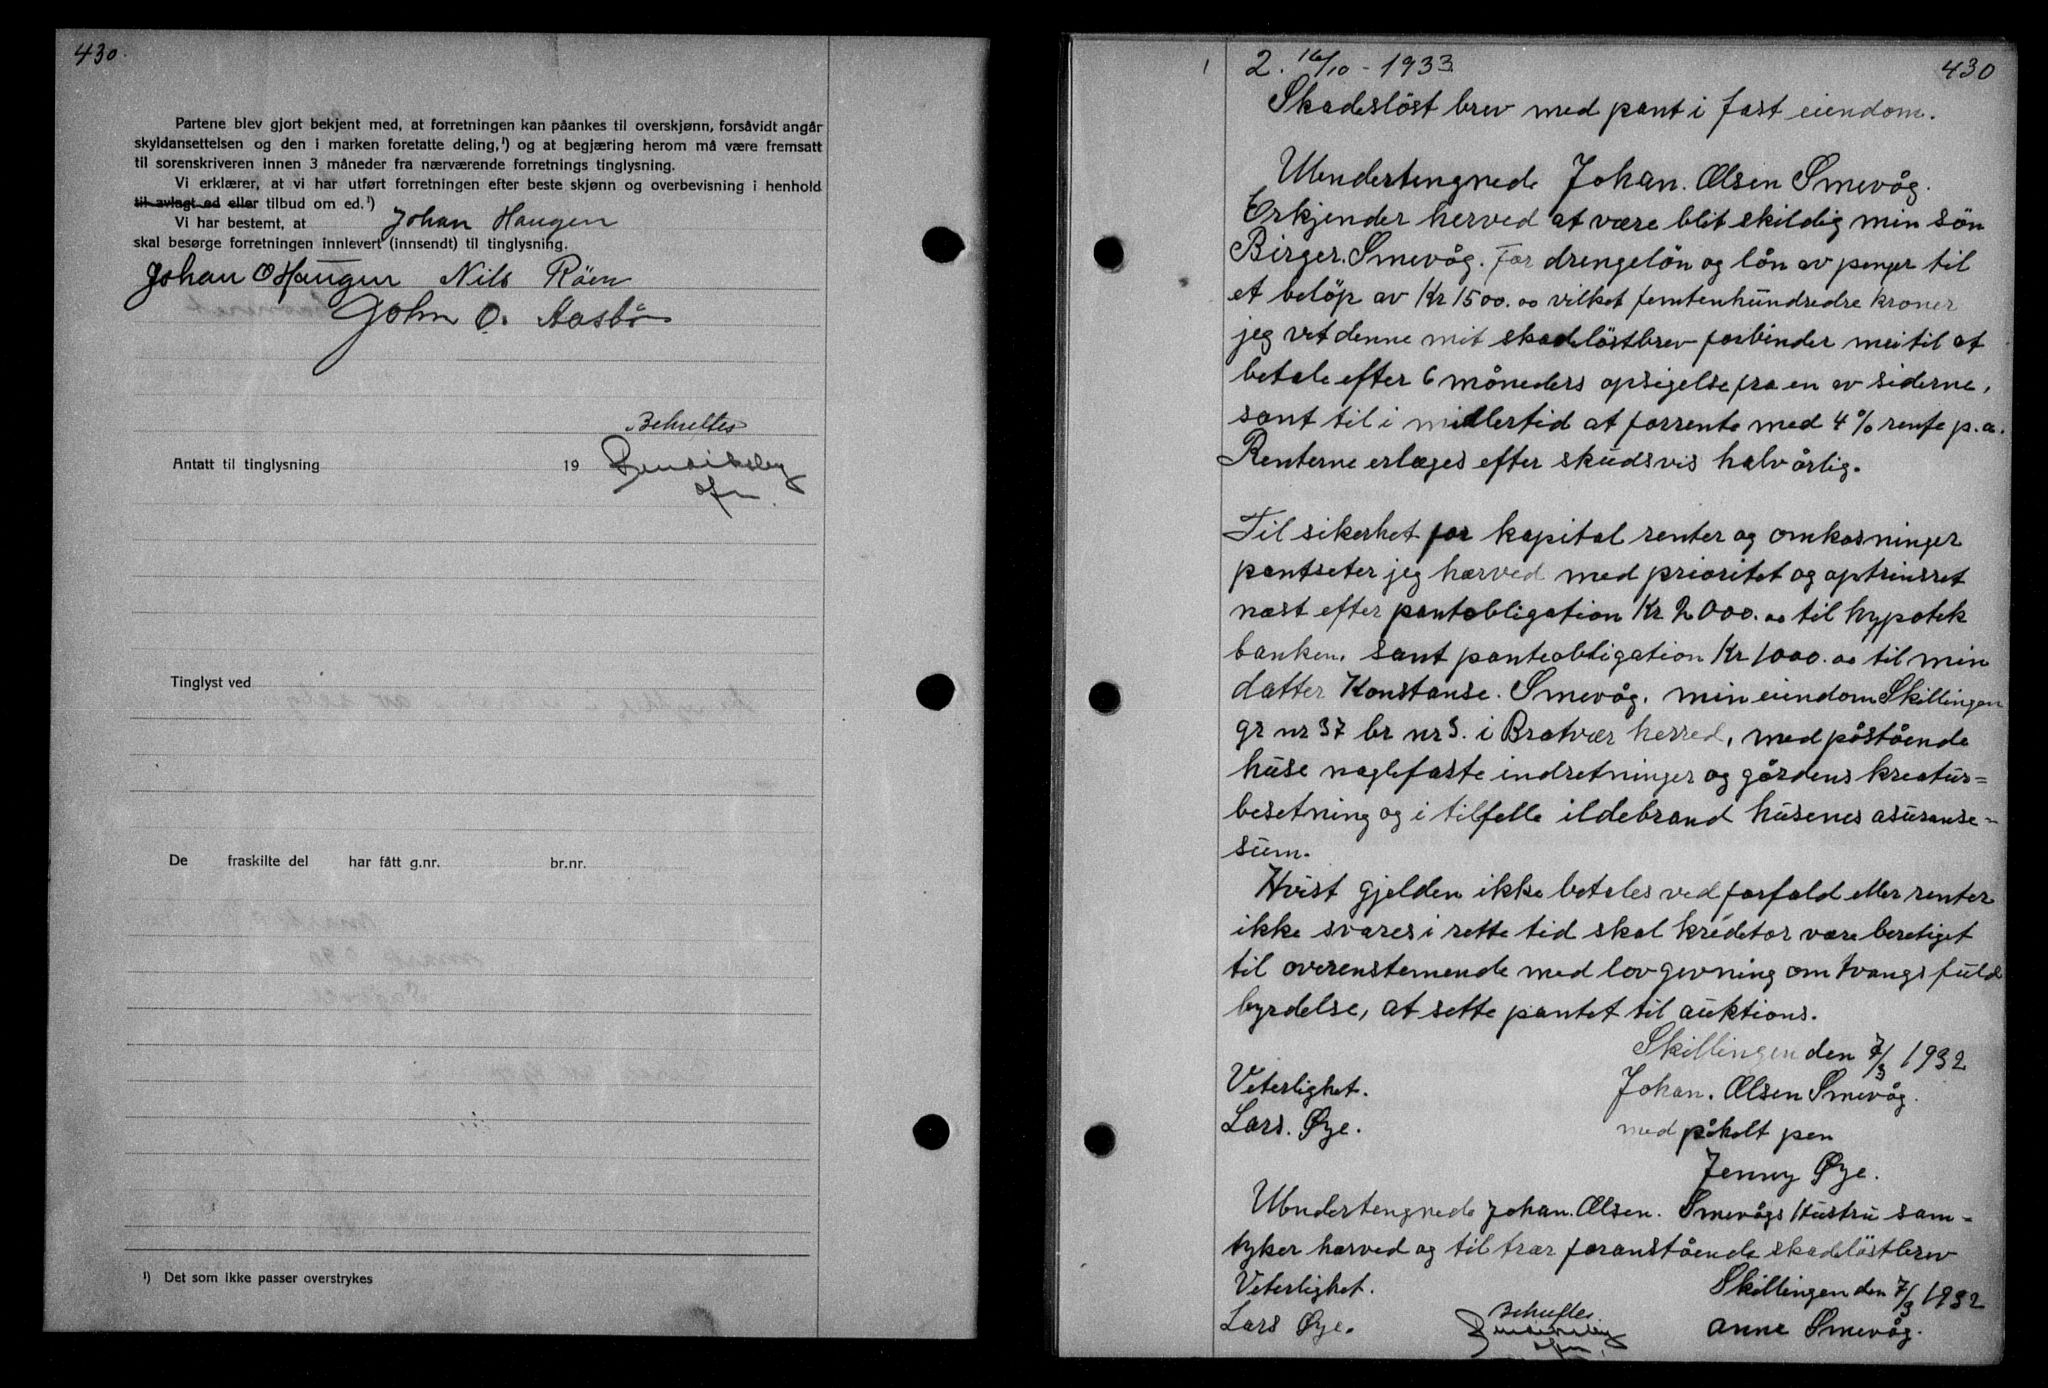 430.
Partene blev gjort bekjent med, at forretningen kan påankes til overskjønn, forsåvidt angår
skyldansettelsen og den i marken foretatte deling,¹) og at begjæring herom må være fremsatt
til sorenskriveren innen 3 måneder fra nærværende forretnings tinglysning.
Vi erklærer, at vi har utført forretningen efter beste skjønn og overbevisning i henhold
til avlagt ed eller tilbud om ed.¹)
Vi har bestemt, at Johan Haugen
skal besørge forretningen innlevert (innsendt) til tinglysning.
Johan O Haugen Nils Röen
John O. Aasbö
Antatt til tinglysning 19
Tinglyst ved
De fraskilte del har fått g.nr. br.nr.
¹) Det som ikke passer overstrykes
2. 16/10 - 1933 430
Skadeslöst brev med pant i fast eiendom.
Undertengnede Johan. Olsen Smevåg.
Erkjender herved at være blit skildig min sön
Birger. Smevåg. For drengelön og lån av penger til
et belöp av Kr 1500.00 vilket femtenhundredre kroner
jeg vet denne mit skadelöstbrev forbinder mei til at
betale efter 6 måneders opsigelse fra en av siderne,
sant til i midlertid at forrente med 4 % rente p.a.
Renterne erlæges efter skudsvis halvårlig.
Til sikerhet for kapital renter og omkosninger
pantseter jeg hærved med prioritet og optrinsret
næst efter pantobligation Kr 2000.00 til hypotek
banken. sant panteobligation Kr 1000.00 til min
datter Konstanse. Smevåg. min eiendom Skillingen
gr nr 37 br nr 3. i Bratvær herred, med påstående
huse naglefaste indretninger og gårdens kreatur=
besetning og i tilfelle ildebrand husenes asuranse=
sum.
Hvist gjelden ikke betales ved forfald eller renter
ikke svares i rette tid skal kreditor være beretiget
til overenstemende med lovgevning om tvangsfuld
byrdelse, at sette pantet til auktions.
Skillingen den 7/3 1932
Veterlighet. Johan. Olsen Smevåg.
Lars. Øye. med påholt pen
Jenny Øye.
Undertengnede Johan. Olsen. Smevågs Hustru sam=
tyker hærved og til trær foranstående skadelöstbrev
Veterlighet. Skillingen den 7/3 1932
Lars Øye. Anne Smevåg.